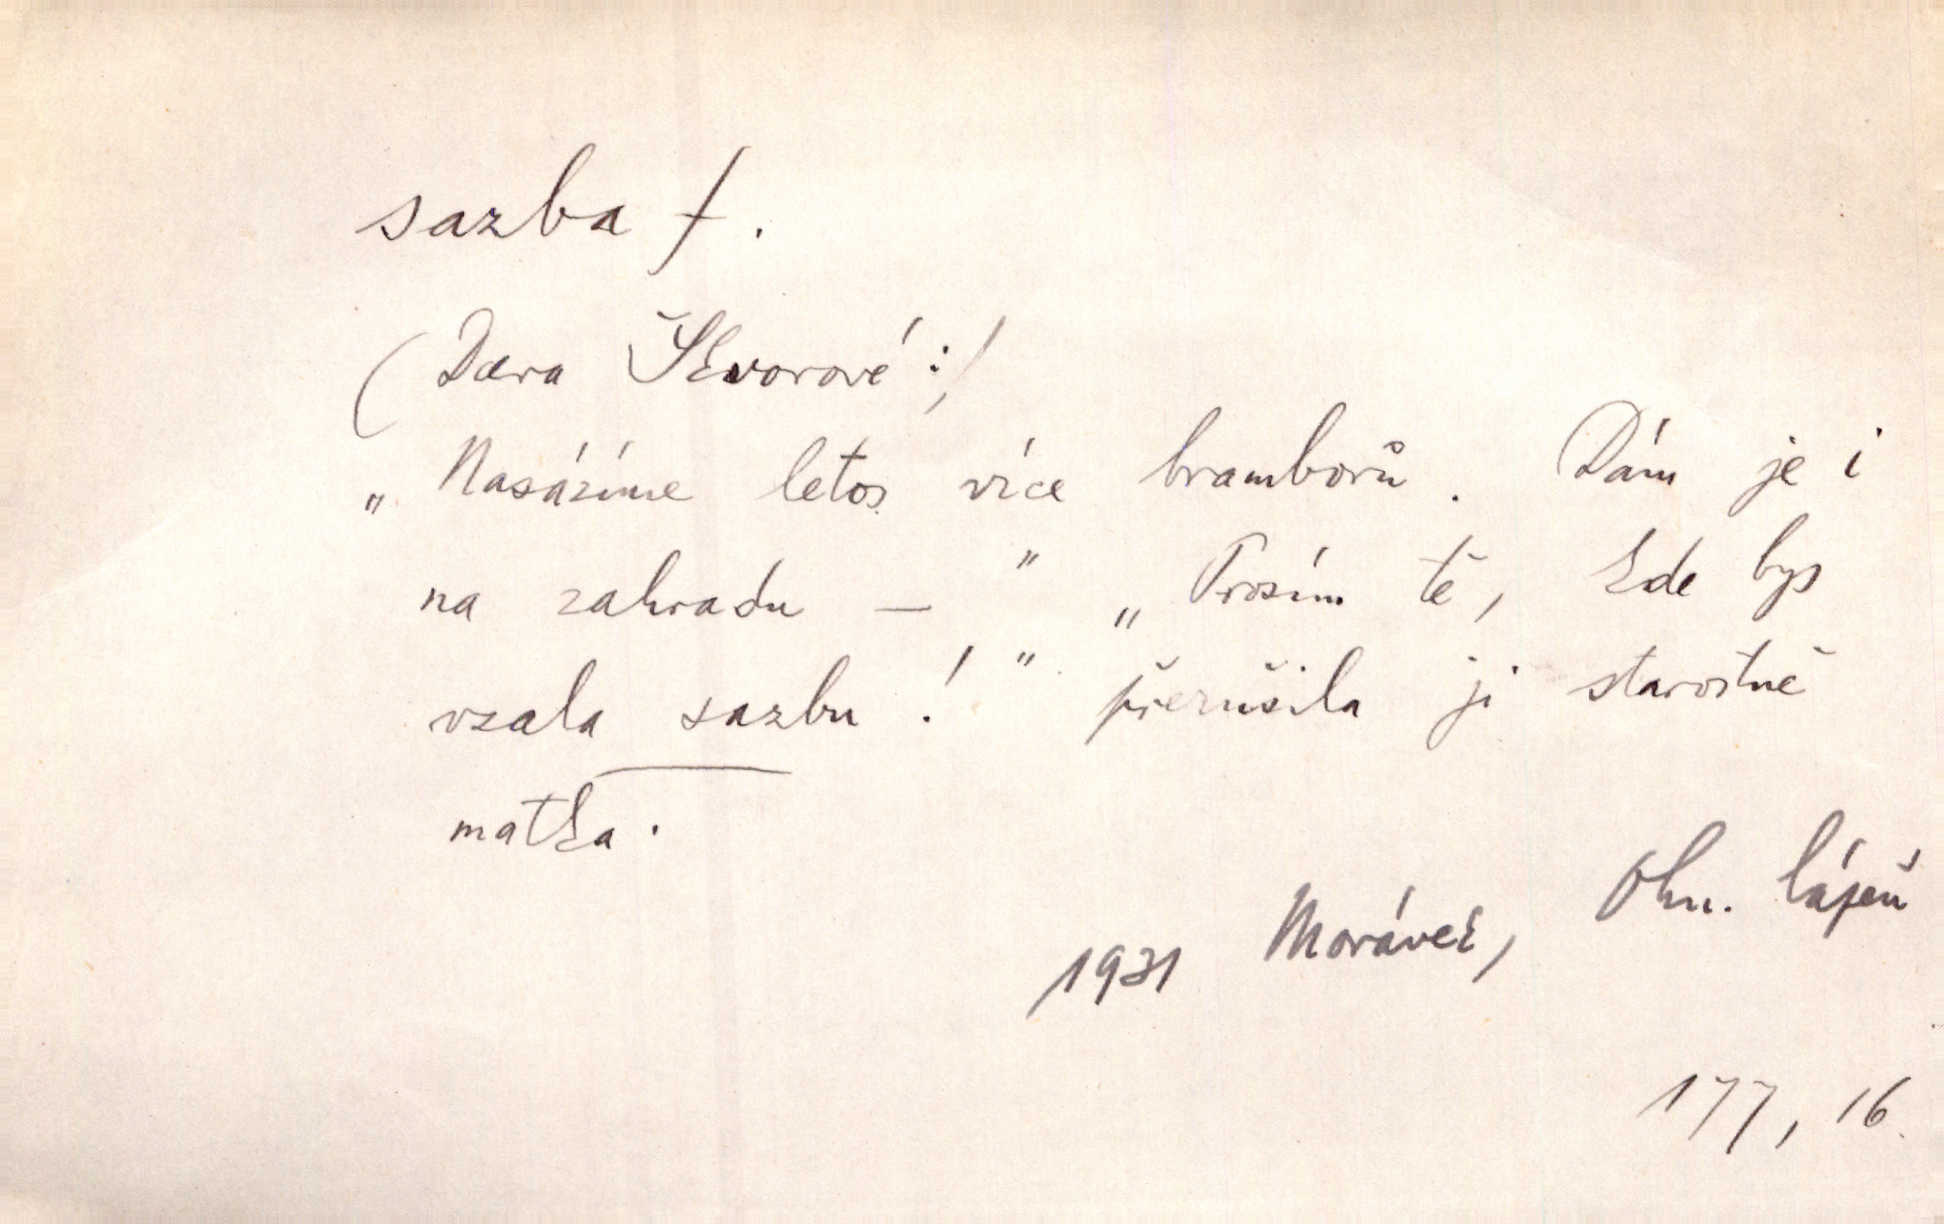 sazba f.
(Dcera Škvorové:)
„Nasázíme letos více bramborů. Dám je i
na zahradu — " „Prosím tě, kde bys
vzala sazbu!" přerušila ji starostně
matka.
1931 Morávek, Ohn. lápeň
177, 16